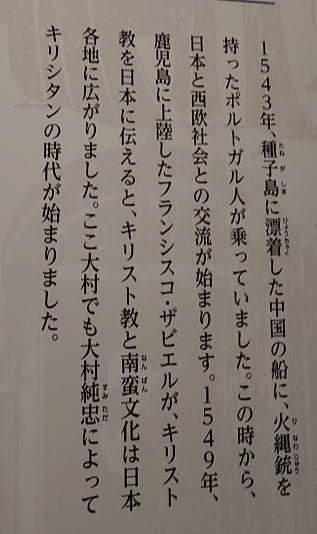 1543年、種子島に漂着した中国の船に、火縄銃を
持ったポルトガル人が乗っていました。この時から、
日本と西欧社会との交流が始まります。1549年、
鹿児島に上陸したフランシスコ・ザビエルが、キリスト
教を日本に伝えると、キリスト教と南蛮文化は日本
各地に広がりました。ここ大村でも大村純忠によって
キリシタンの時代が始まりました。